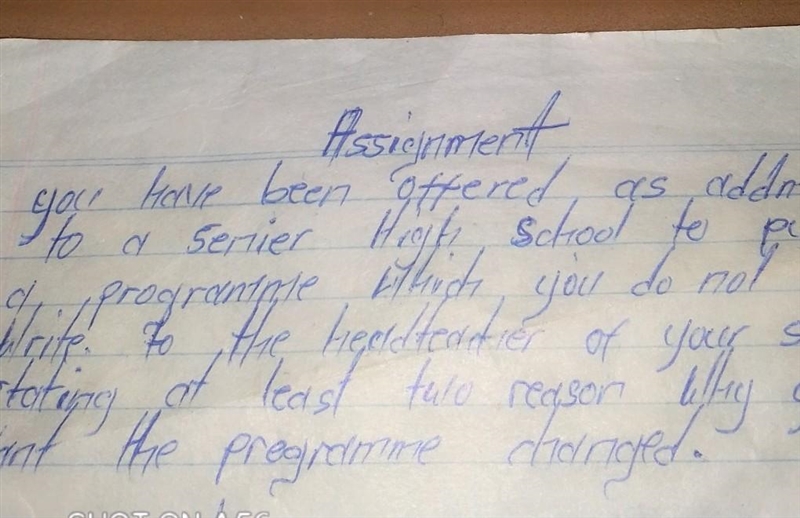 Assignment
you have been offered as addm
to a Senier High School to pu
a programme which you do not
Write to the headteacher of your s
stating at least two reason Why
ant the programme changed.
SHOT ON A56